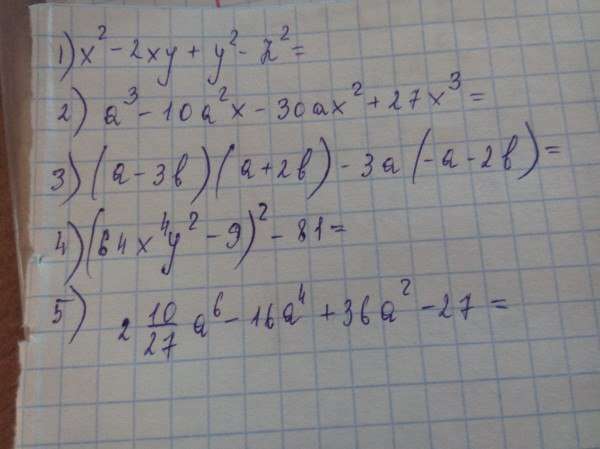 1) x² - 2xy + y² - z² =
2) a³ - 10a²x - 30ax² + 27x³ =
3) (a - 3b)(a + 2b) - 3a(-a - 2b) =
4) (64x⁴y² - 9)² - 81 =
5) 2 10/27 a⁶ - 16a⁴ + 36a² - 27 =